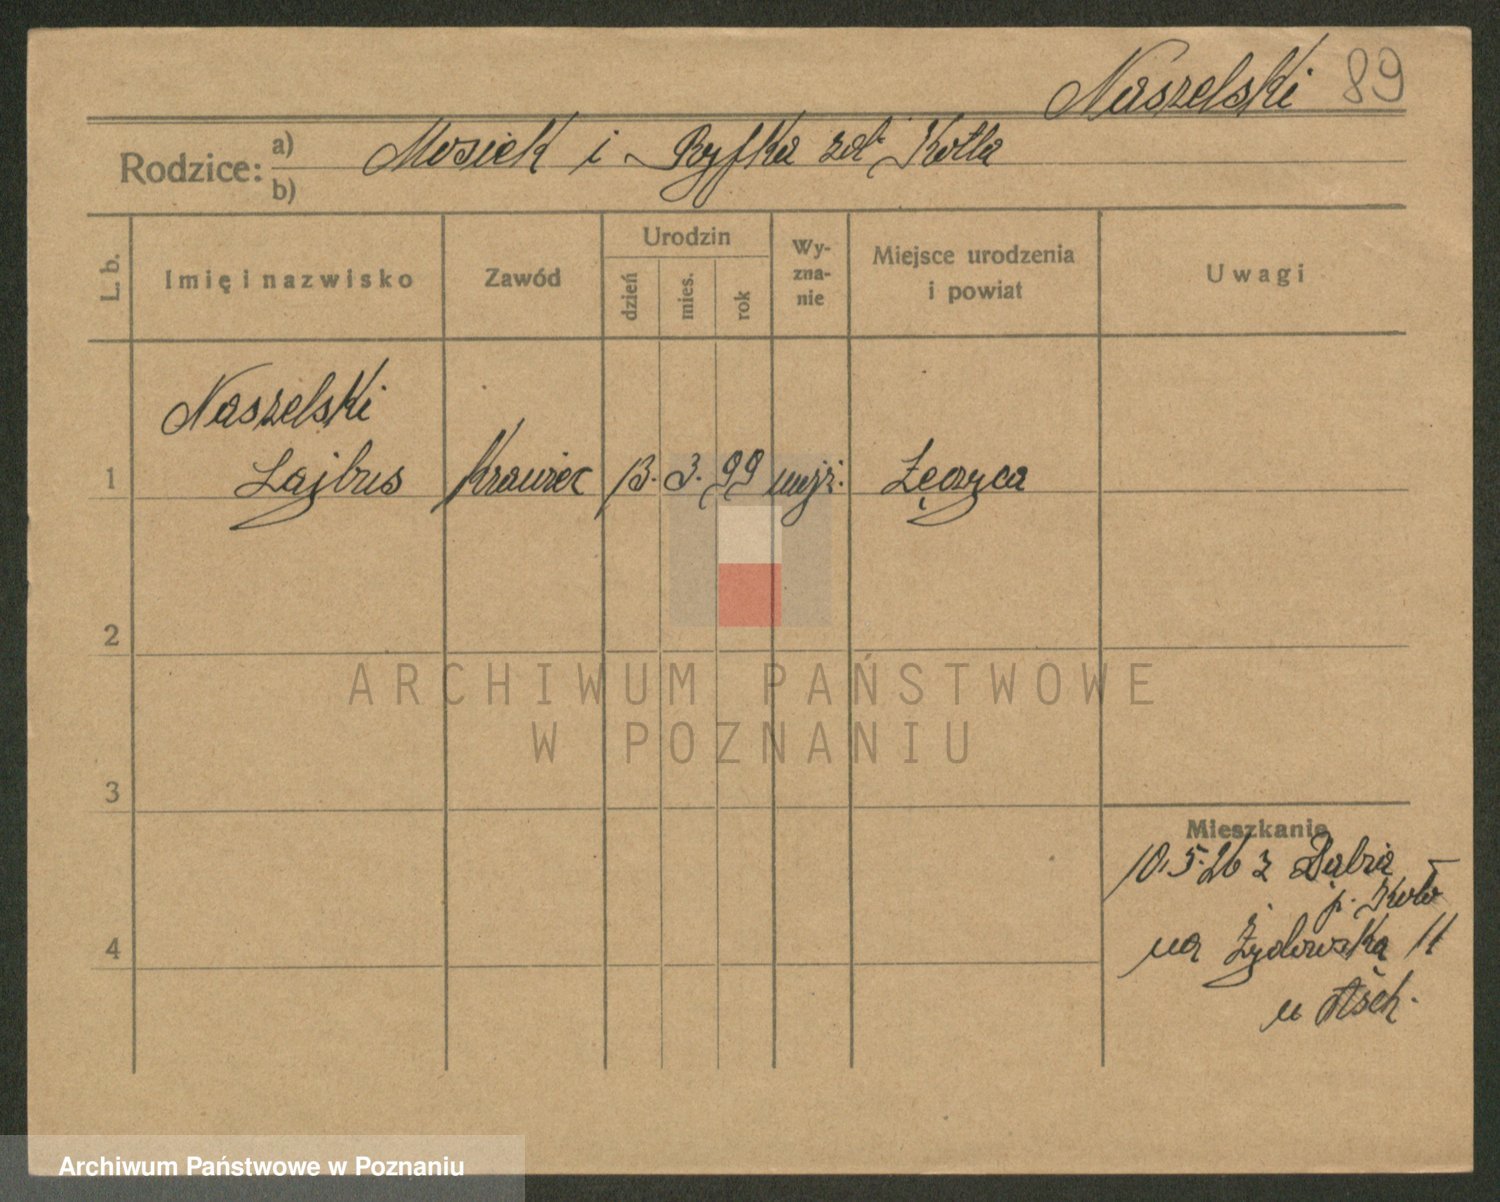 Naszelski 89
Rodzice: a) b) Mosiek i Ryfka Kotla
L. b.
Imię i nazwisko
Zawód
Urodzin
dzień
mies.
rok
Wy-
zna-
nie
Miejsce urodzenia
i powiat
Uwagi
Naszelski
1 Lajbus Krawiec 13. 3. 99 mojż. Łęczyca
2
3
4
Mieszkanie
10.5.26 z Dąbia
p. Koło
na Żydowską 11
u
ARCHIWUM PAŃSTWOWE
W POZNANIU
Archiwum Państwowe w Poznaniu